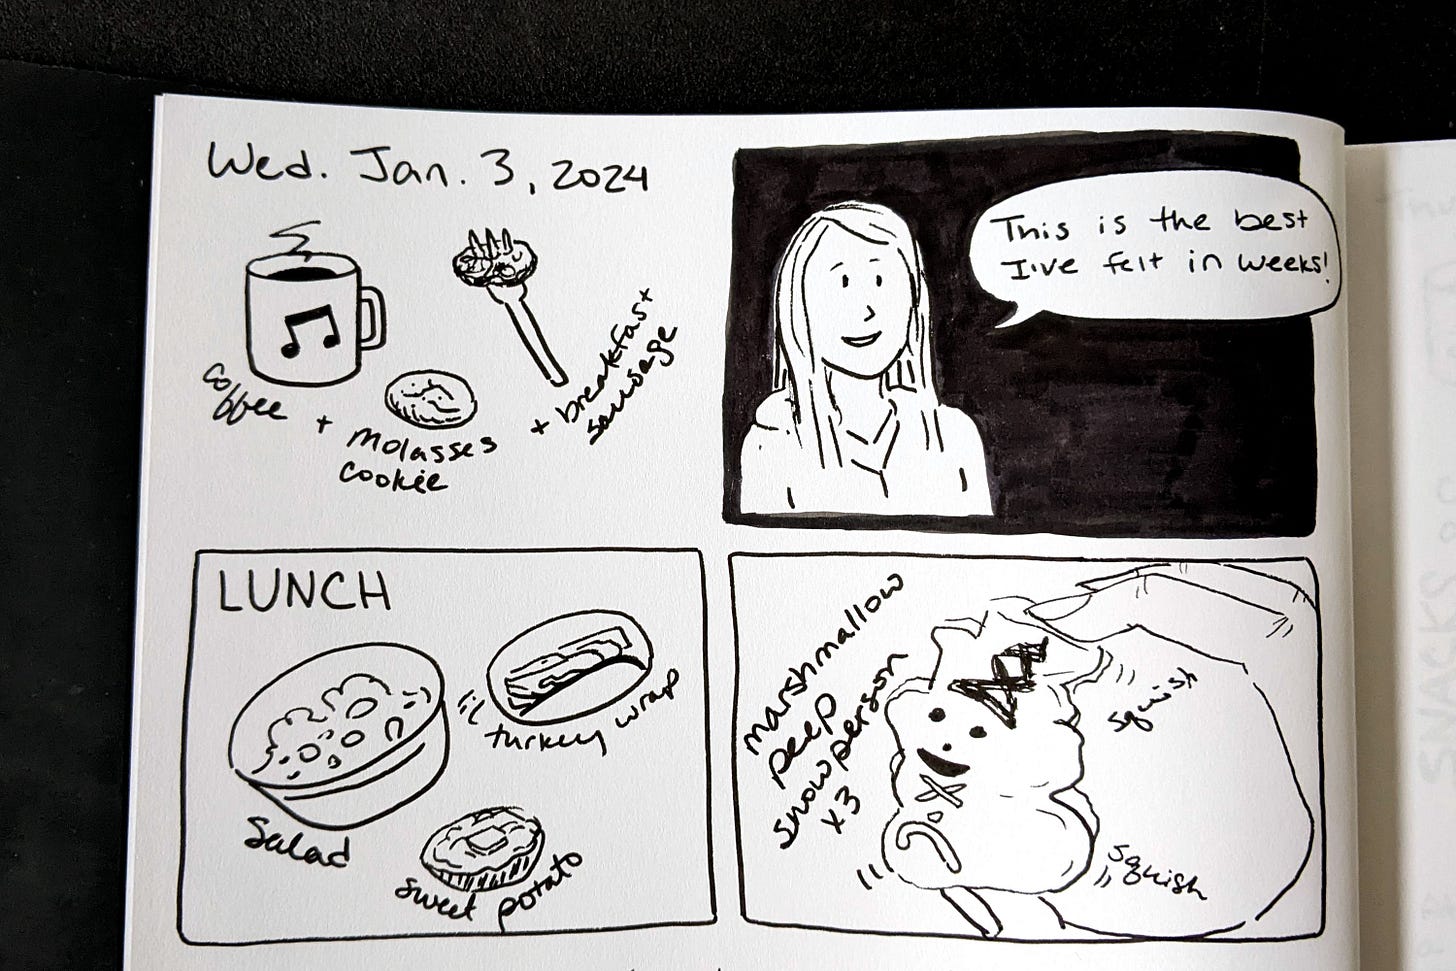 Wed. Jan. 3, 2024
coffee
+ molasses
cookie
+ breakfast
sausage
This is the best
I've felt in weeks!
LUNCH
turkey wrap
Salad
sweet potato
marshmallow
peep
snowperson
x3
squish
squish